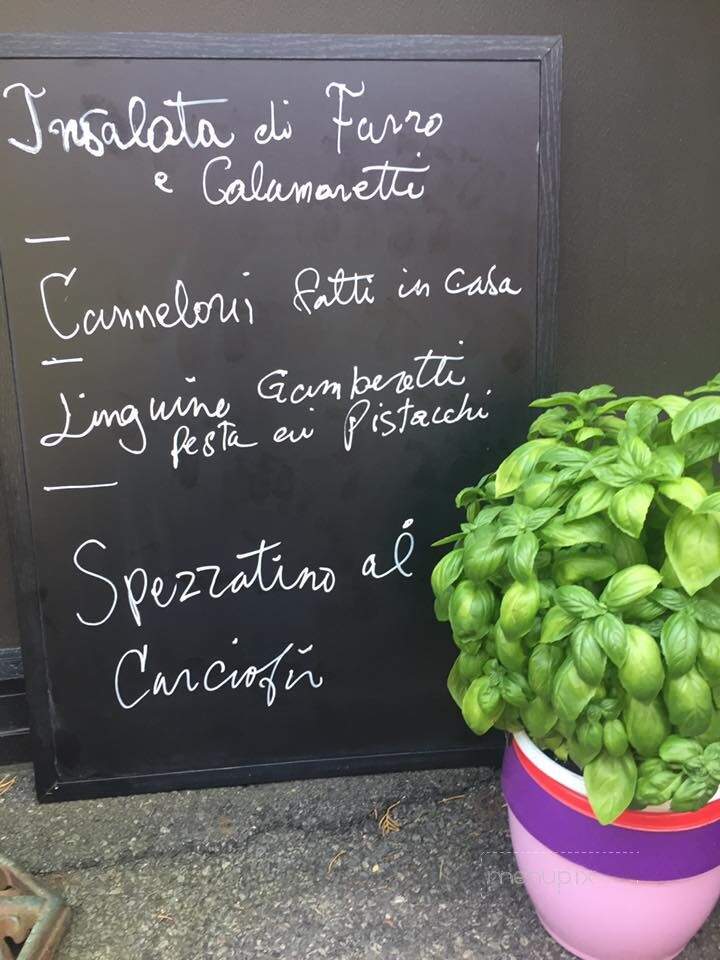 Insalata di Farro
e Calamaretti
Canneloni fatti in casa
Linguine Gamberetti
pesta ei Pistacchi
Spezzatino ai
Carciofi
menupix